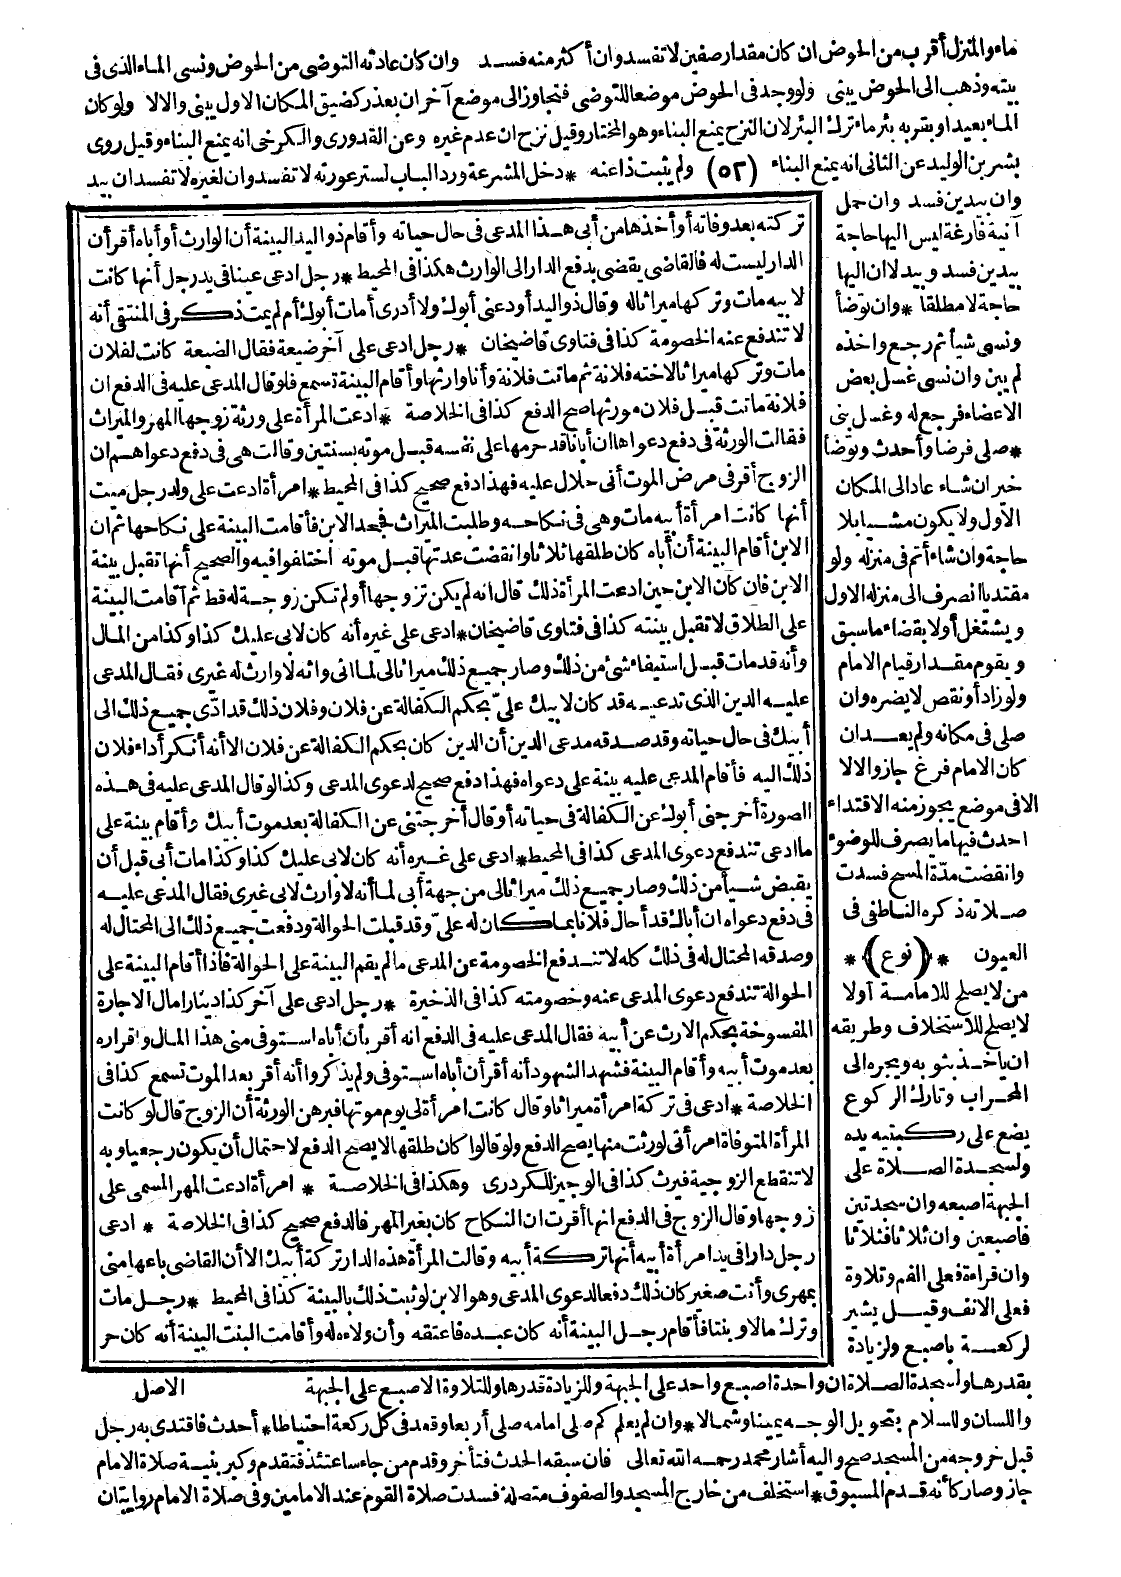 ماء والمنزل أقرب من الحوض ان كان مقدار صفين لا تفسد وان أكثر منه فسد وان كان عادته التوضى من الحوض ونسى الماء الذى فى
بيته وذهب الى الحوض يبنى ولو وجد فى الحوض موضعا للتوضى فتجاوز الى موضع آخر ان بعذر كضيق المكان الاول يبنى والا لا ولو كان
الماء بعيدا وبقربه بئر ماء ترك البئر لان النزح يمنع البناء وهو المختار وقيل نزح ان عدم غيره وعن القدورى والكرخى انه يمنع البناء وقيل روى
بشر بن الوليد عن الثانى انه يمنع البناء (٥٢) ولم يثبت ذا عنه * دخل المشرعة ورد الباب لستر عورته لا تفسد وان لغيره لا تفسد ان بيد
وان بيدين فسد وان حمل
آنية فارغة ليس اليها حاجة
بيدين فسد وبيد لا ان اليها
حاجة لا مطلقا * وان توضأ
ونسى شيأ ثم رجع واخذه
لم يبن وان نسى غسل بعض
الاعضاء فرجع له وغسل بنى
* صلى فرضا وأحدث وتوضأ
خير ان شاء عاد الى المكان
الاول ولا يكون مشيا بلا
حاجة وان شاء أتم فى منزله ولو
مقتديا انصرف الى منزله الاول
ويشتغل أولا بقضاء ما سبق
ويقوم مقدار قيام الامام
ولو زاد أو نقص لا يضره وان
صلى فى مكانه ولم يعد ان
كان الامام فرغ جاز والا لا
الا فى موضع يجوز منه الاقتداء
احدث فيها ما يصرف للوضوء
وانقضت مدة المسح فسدت
صلاته ذكره الناطفى فى
العيون * (نوع) *
من لا يصلح للامامة أولا
لا يصلح للاستخلاف وطريقه
ان ياخذ بثوبه ويجره الى
المحراب وتارك الركوع
يضع على ركبتيه يده
ولسجدة الصلاة على
الجبهة اصبعه وان سجدتين
فاصبعين وان ثلاثا فثلاثا
وان قراءة فعلى الفم وتلاوة
فعلى الانف وقيل يشير
لركعة باصبع ولزيادة
تركته بعد وفاته أو أخذها من أبى هذا المدعى فى حال حياته وأقام ذو اليد البينة أن الوارث أو أباه أقر أن
الدار ليست له فالقاضى يقضى بدفع الدار الى الوارث هكذا فى المحيط * رجل ادعى عينا فى يد رجل أنها كانت
لابيه مات وتركها ميراثا له وقال ذو اليد أودعنى أبوك ولا أدرى أمات أبوك أم لم يمت ذكر فى المنتقى أنه
لا تندفع عنه الخصومة كذا فى فتاوى قاضيخان * رجل ادعى على آخر ضيعة فقال الضيعة كانت لفلان
مات وتركها ميراثا لاخته فلانة ثم ماتت فلانة وأنا وارثها وأقام البينة تسمع فلو قال المدعى عليه فى الدفع ان
فلانة ماتت قبل فلان مورثها صح الدفع كذا فى الخلاصة * ادعت المرأة على ورثة زوجها المهر والميراث
فقالت الورثة فى دفع دعواها ان أبانا قد حرمها على نفسه قبل موته بسنتين وقالت هى فى دفع دعواهم ان
الزوج أقر فى مرض الموت أنى حلال عليه فهذا دفع صحيح كذا فى المحيط * امرأة ادعت على ولد رجل ميت
أنها كانت امرأة أبيه مات وهى فى نكاحه وطلبت الميراث فجحد الابن فأقامت البينة على نكاحها ثم ان
الابن أقام البينة أن أباه كان طلقها ثلاثا وانقضت عدتها قبل موته اختلفوا فيه والصحيح أنها تقبل بينة
الابن فان كان الابن حين ادعت المرأة ذلك قال انه لم يكن تزوجها أو لم تكن زوجة له قط ثم أقامت البينة
على الطلاق لا تقبل بينته كذا فى فتاوى قاضيخان * ادعى على غيره أنه كان لابى عليك كذا وكذا من المال
وأنه قد مات قبل استيفاء شئ من ذلك وصار جميع ذلك ميراثا لى لما انى وانه لا وارث له غيرى فقال المدعى
عليه الدين الذى تدعيه قد كان لابيك على بحكم الكفالة عن فلان وفلان ذلك قد ادّى جميع ذلك الى
أبيك فى حال حياته وقد صدقه مدعى الدين أن الدين كان بحكم الكفالة عن فلان الا أنه أنكر أداء فلان
ذلك اليه فأقام المدعى عليه بينة على دعواه فهذا دفع صحيح لدعوى المدعى وكذا لو قال المدعى عليه فى هذه
الصورة أخرجنى أبوك عن الكفالة فى حياته أو قال أخرجتنى عن الكفالة بعد موت أبيك وأقام بينة على
ما ادعى تندفع دعوى المدعى كذا فى المحيط * ادعى على غيره أنه كان لابى عليك كذا وكذا مات أبى قبل أن
يقبض شيأ من ذلك وصار جميع ذلك ميراثا لى من جهة أبى لما أنه لا وارث لابى غيرى فقال المدعى عليه
فى دفع دعواه ان أباك قد أحال فلانا بما كان له علىّ وقد قبلت الحوالة ودفعت جميع ذلك الى المحتال له
وصدقه المحتال له فى ذلك كله لا تندفع الخصومة عن المدعى ما لم يقم البينة على الحوالة فاذا أقام البينة على
الحوالة تندفع دعوى المدعى عنه وخصومته كذا فى الذخيرة * رجل ادعى على آخر كذا دينارا مال الاجارة
المفسوخة بحكم الارث عن أبيه فقال المدعى عليه فى الدفع انه أقر بأن أباه استوفى منى هذا المال واقراره
بعد موت أبيه وأقام البينة فشهد الشهود أنه أقر أن أباه استوفى ولم يذكروا أنه أقر بعد الموت تسمع كذا فى
الخلاصة * ادعى فى تركة امرأة ميراثا وقال كانت امرأة لى يوم موتها فبرهن الورثة أن الزوج قال لو كانت
المرأة المتوفاة امرأتى لورثت منها يصح الدفع ولو قالوا كان طلقها لا يصح الدفع لاحتمال أن يكون رجعيا وبه
لا تنقطع الزوجية فيرث كذا فى الوجيز للكردرى وهكذا فى الخلاصة * امرأة ادعت المهر المسمى على
زوجها وقال الزوج فى الدفع انها أقرت ان النكاح كان بغير المهر فالدفع صحيح كذا فى الخلاصة * ادعى
رجل دارا فى يد امرأة أبيه أنها تركة أبيه وقالت المرأة هذه الدار تركة أبيك الا أن القاضى باعها منى
بمهرى وأنت صغير كان ذلك دفعا لدعوى المدعى وهو الابن لو ثبت ذلك بالبينة كذا فى المحيط * رجل مات
وترك مالا وبنتا فأقام رجل البينة أنه كان عبده فاعتقه وأن ولاءه له وأقامت البنت البينة أنه كان حر
الاصل
بقدرها ولسجدة الصلاة ان واحدة اصبع واحد على الجبهة وللزيادة قدرها وللتلاوة الاصبع على الجبهة
واللسان وللسلام بتحويل الوجه يمينا وشمالا * وان لم يعلم كم صلى امامه صلى أربعا وقعد فى كل ركعة احتياطا * أحدث فاقتدى به رجل
قبل خروجه من المسجد صح واليه أشار محمد رحمه الله تعالى فان سبقه الحدث فتأخر وقدم من جاء ساعتئذ فتقدم وكبر بنية صلاة الامام
جاز وصار كأنه قدم المسبوق * استخلف من خارج المسجد والصفوف متصلة فسدت صلاة القوم عند الامامين وفى صلاة الامام روايتان